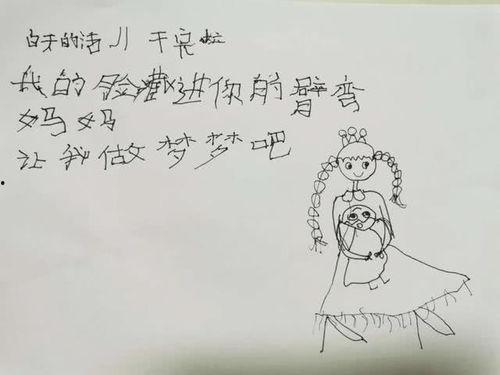 白天的活儿干完啦
我的脸藏进你的臂弯
妈妈
让我做梦梦吧